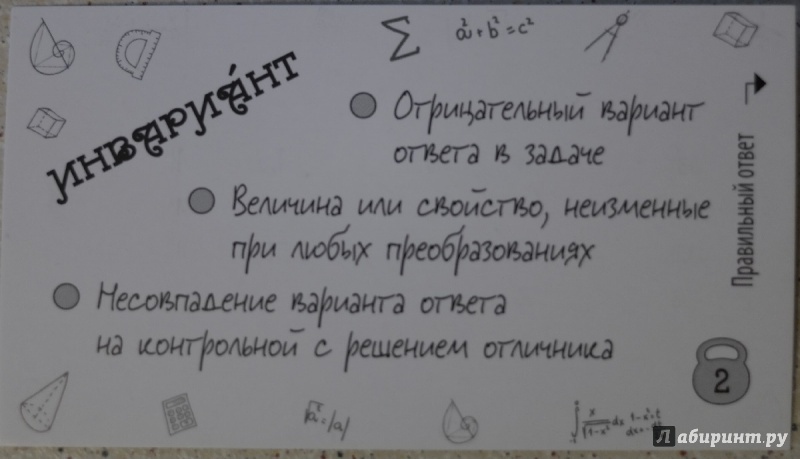 Σ
a²+b²=c²
ИНВАРИА́НТ
Отрицательный вариант
ответа в задаче
Величина или свойство, неизменные
при любых преобразованиях
Несовпадение варианта ответа
на контрольной с решением отличника
Правильный ответ
2
Лабиринт.ру